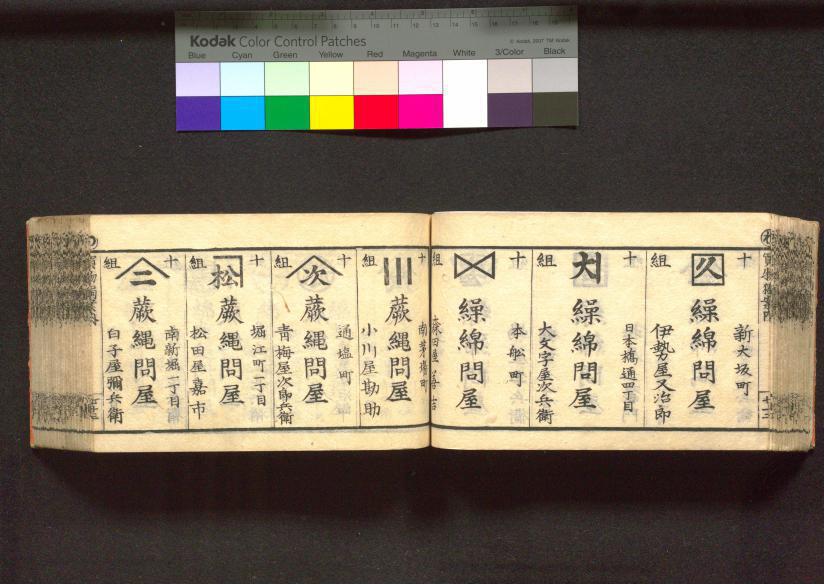 Kodak Color Control Patches
© Kodak, 2007 TM: Kodak
Blue Cyan Green Yellow Red Magenta White 3/Color Black
十組
久
新大坂町
繰綿問屋
伊勢屋又治郎
十組
大
日本橋通四丁目
繰綿問屋
大文字屋次兵衛
十組
本舩町
繰綿問屋
十組
南茅場町
蕨縄問屋
小川屋勘助
十組
次
通塩町
蕨縄問屋
青梅屋次郎兵衛
十組
松
堀江町二丁目
蕨縄問屋
松田屋嘉市
十組
二
南新堀一丁目
蕨縄問屋
白子屋彌兵衛